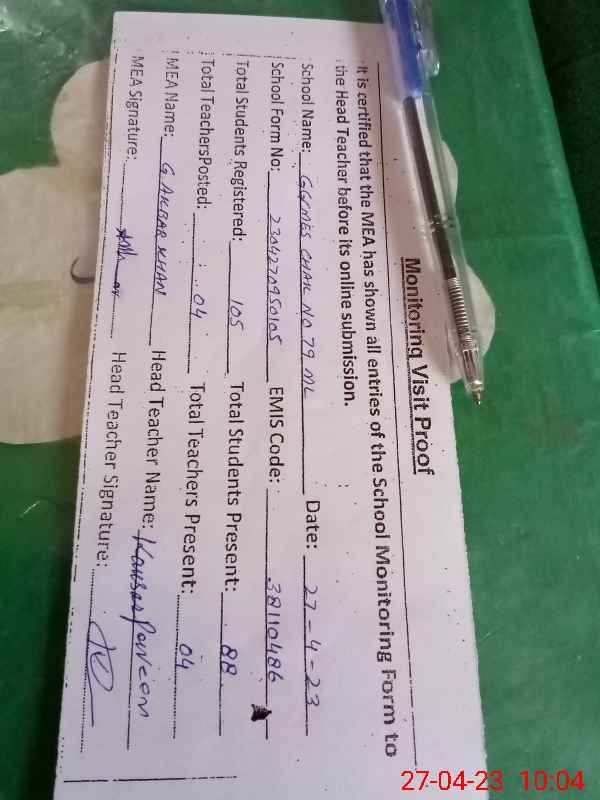 Monitoring Visit Proof
It is certified that the MEA has shown all entries of the School Monitoring Form to
the Head Teacher before its online submission.
School Name: GGMES CHAK NO 79 ML Date: 27-4-23
School Form No: 230427095010S EMIS Code: 38110486
Total Students Registered: 105 Total Students Present: 88
Total TeachersPosted: 04 Total Teachers Present: 04
MEA Name: G AKBAR KHAN Head Teacher Name: Kausar Parveen
MEA Signature: Head Teacher Signature:
27-04-23 10:04